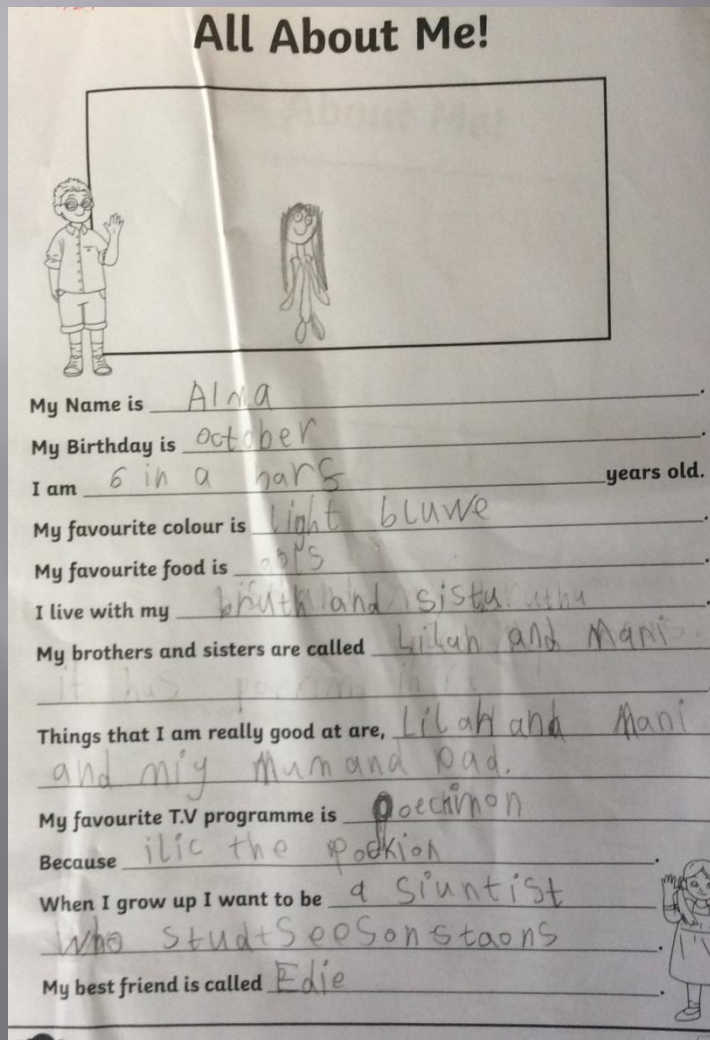 All About Me!
My Name is Alma.
My Birthday is October.
I am 6 in a hars years old.
My favourite colour is light bluwe.
My favourite food is apls.
I live with my bruth and sistu.
My brothers and sisters are called Lilah and Mani
it has in it
Things that I am really good at are, Lilah and Mani
and miy Mum and Dad.
My favourite T.V programme is poechimon
Because ilic the pockion.
When I grow up I want to be a siuntist
who studtSeeSonstaons.
My best friend is called Edie.